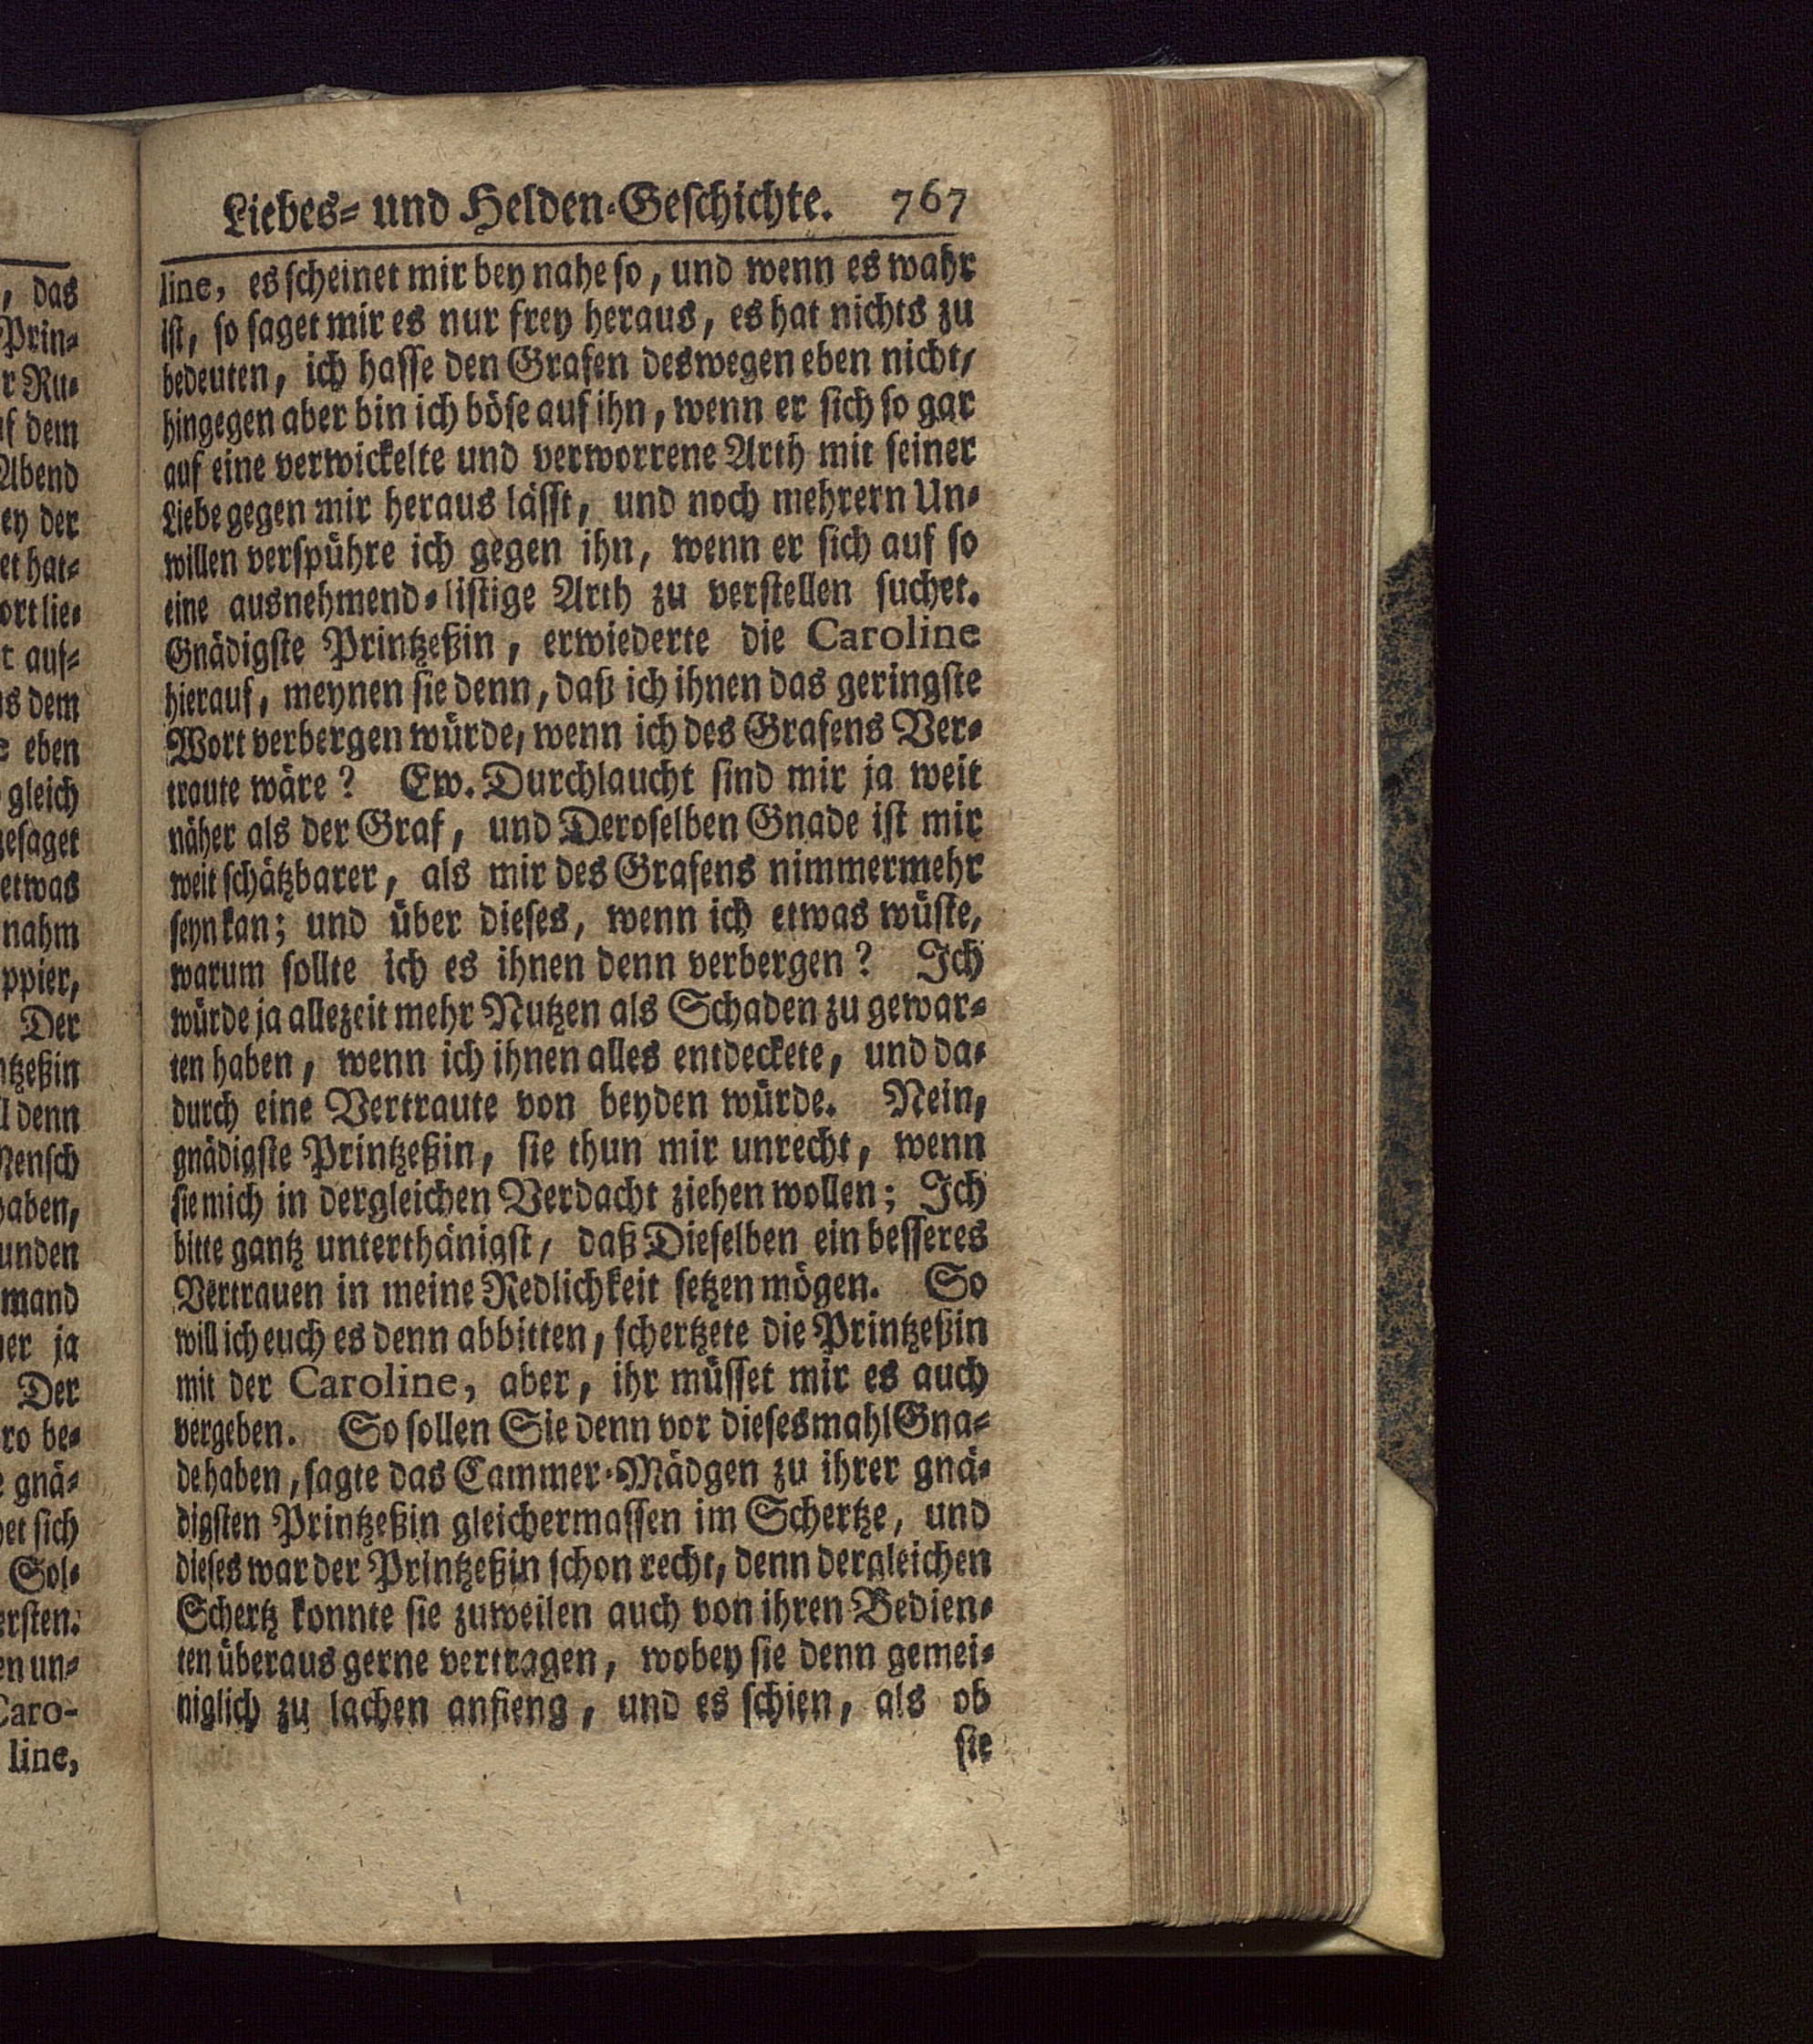 Liebes- und Helden-Geschichte. 767
line, es scheinet mir bey nahe so, und wenn es wahr
ist, so saget mir es nur frey heraus, es hat nichts zu
bedeuten, ich hasse den Grafen deswegen eben nicht,
hingegen aber bin ich böse auf ihn, wenn er sich so gar
auf eine verwickelte und verworrene Arth mit seiner
Liebe gegen mir heraus lässt, und noch mehrern Un-
willen verspühre ich gegen ihn, wenn er sich auf so
eine ausnehmend-listige Arth zu verstellen suchet.
Gnädigste Printzeßin, erwiederte die Caroline
hierauf, meynen sie denn, daß ich ihnen das geringste
Wort verbergen würde, wenn ich des Grafens Ver-
traute wäre? Ew. Durchlaucht sind mir ja weit
näher als der Graf, und Deroselben Gnade ist mir
weit schätzbarer, als mir des Grafens nimmermehr
seyn kan; und über dieses, wenn ich etwas wüste,
warum sollte ich es ihnen denn verbergen? Ich
würde ja allezeit mehr Nutzen als Schaden zu gewar-
ten haben, wenn ich ihnen alles entdeckete, und da-
durch eine Vertraute von beyden würde. Nein,
gnädigste Printzeßin, sie thun mir unrecht, wenn
sie mich in dergleichen Verdacht ziehen wollen; Ich
bitte gantz unterthänigst, daß Dieselben ein besseres
Vertrauen in meine Redlichkeit setzen mögen. So
will ich euch es denn abbitten, schertzete die Printzeßin
mit der Caroline, aber, ihr müsset mir es auch
vergeben. So sollen Sie denn vor diesesmahl Gna-
de haben, sagte das Cammer-Mädgen zu ihrer gnä-
digsten Printzeßin gleichermassen im Schertze, und
dieses war der Printzeßin schon recht, denn dergleichen
Schertz konnte sie zuweilen auch von ihren Bedien-
ten überaus gerne vertragen, wobey sie denn gemei-
niglich zu lachen anfieng, und es schien, als ob
sie